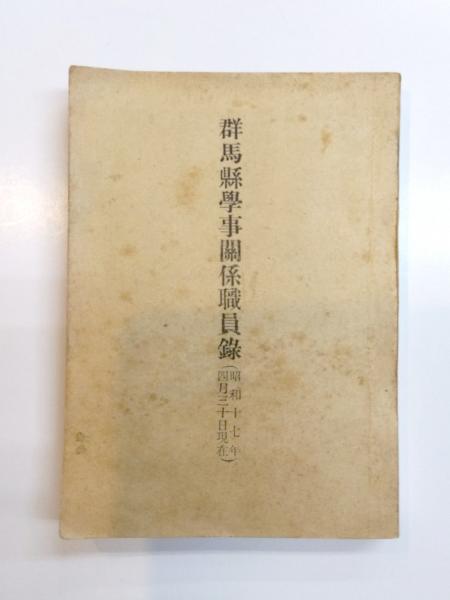 群馬縣學事關係職員錄
(昭和十七年
四月三十日現在)